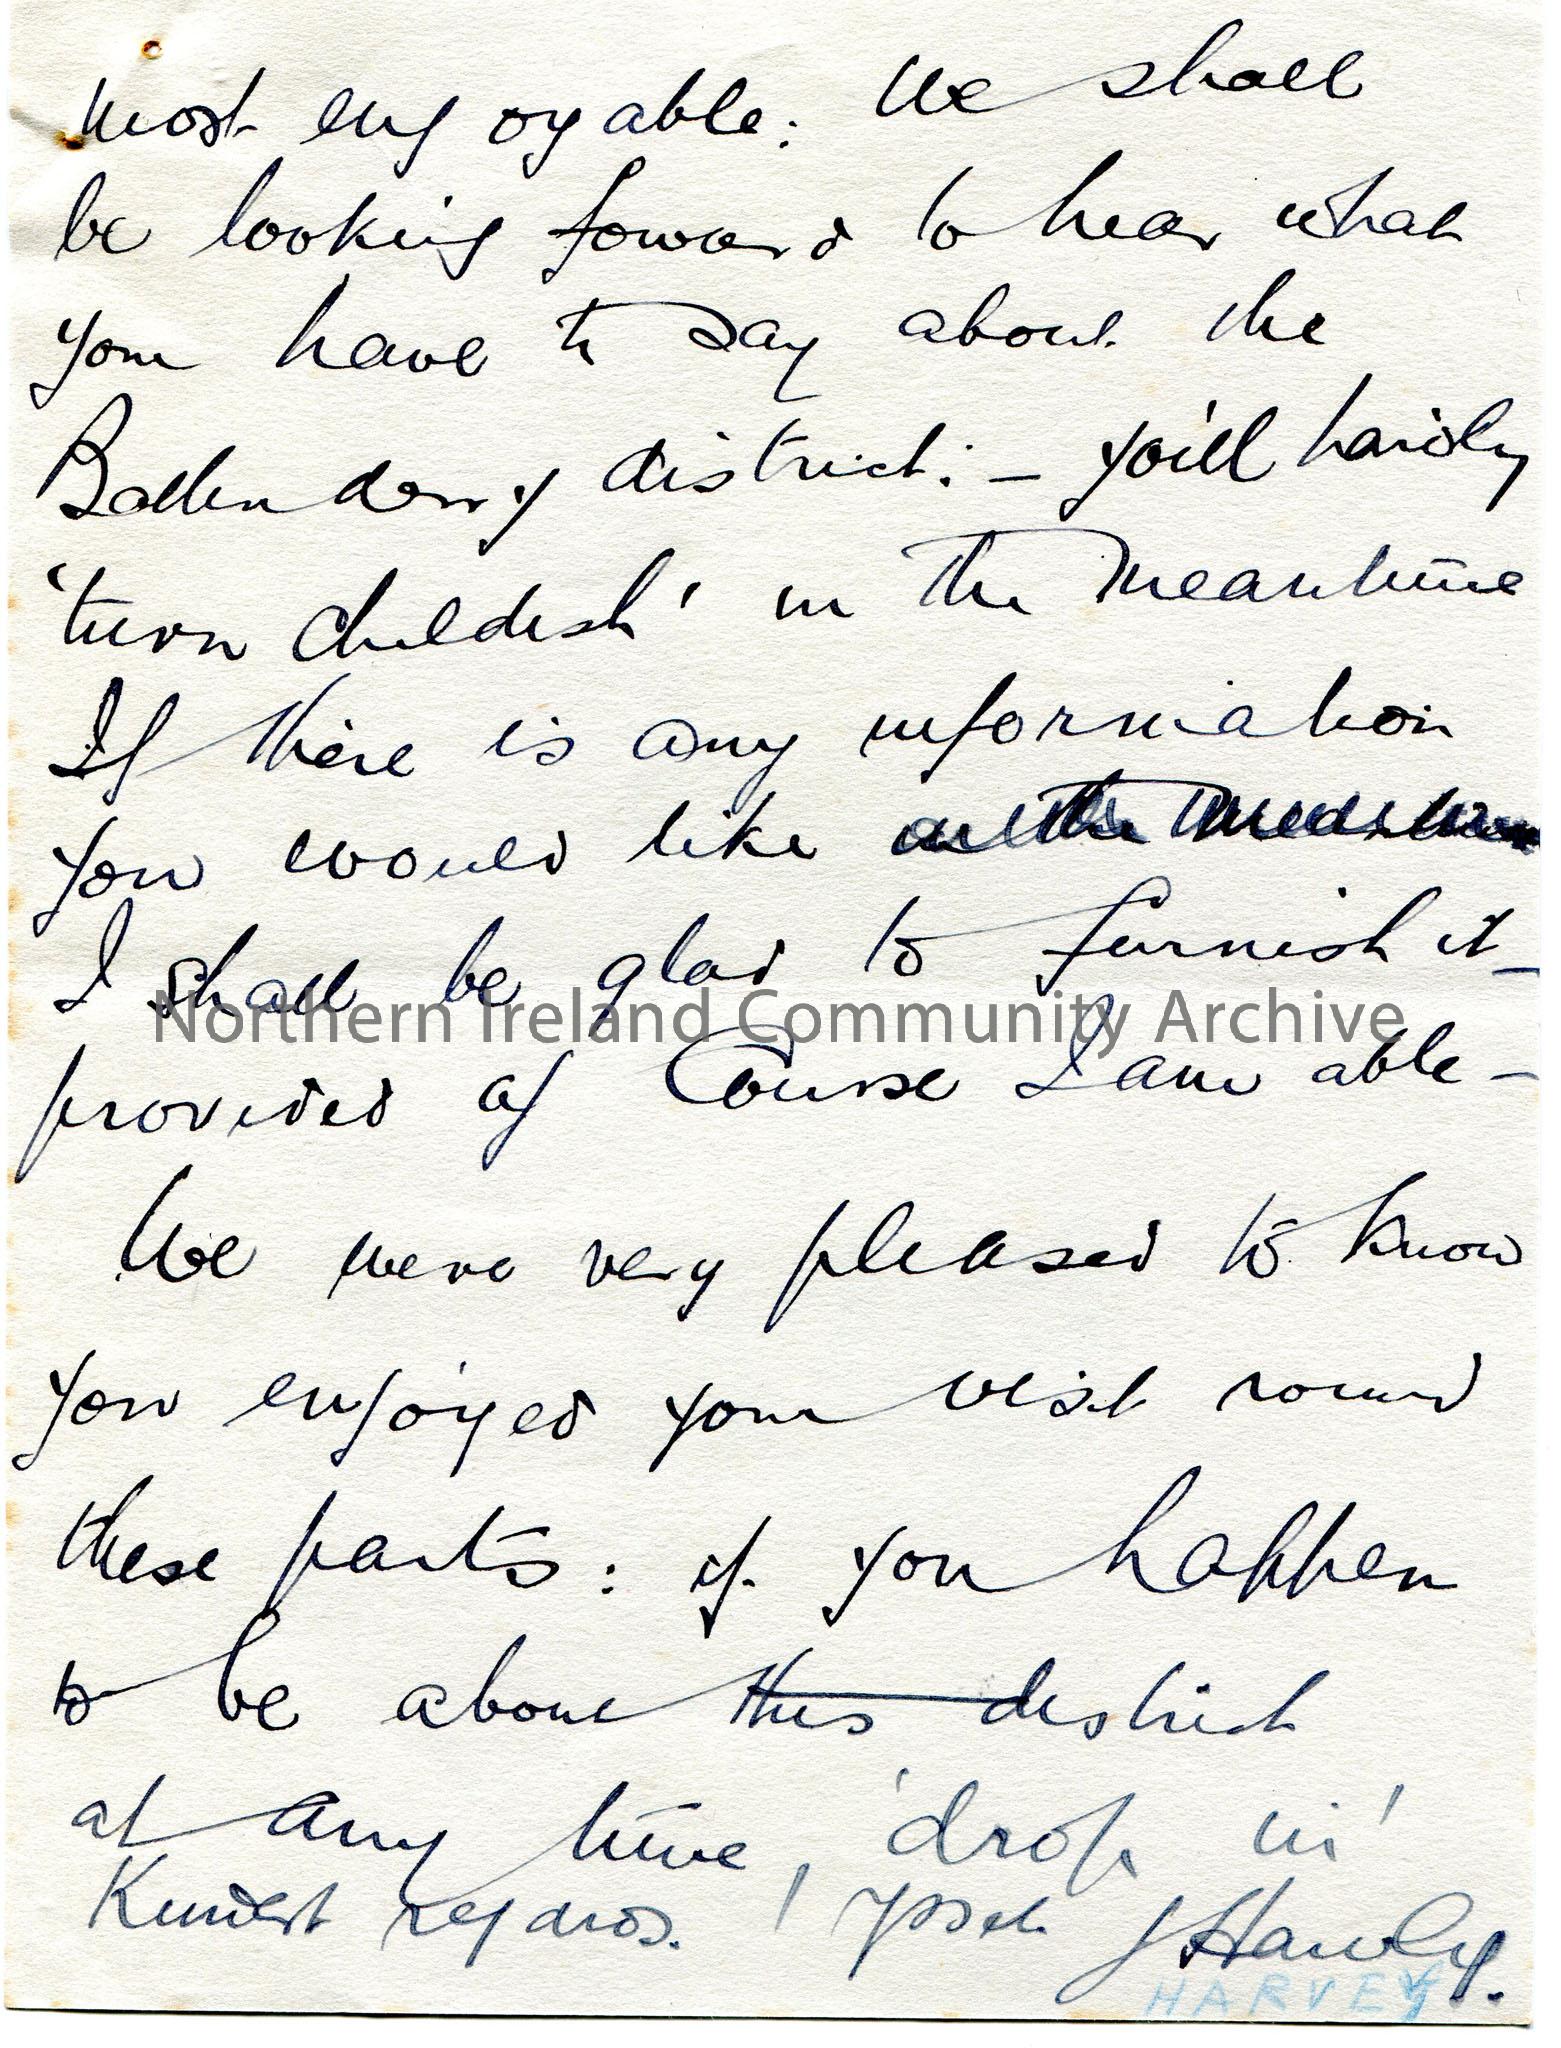 most enjoyable: We shall
be looking forward to hear what
you have to say about the
Ballenderry district: – yo'ill hardly
'turn childish' in the meantime
If there is any information
you would like in the meantime
I shall be glad to furnish it –
provided of Course I am able –
We were very pleased to know
you enjoyed your visit round
these parts: if you happen
to be about this district
at any time, 'drop in'
Kindest regards. Yrs etc J Harvey.
HARVEY
Northern Ireland Community Archive